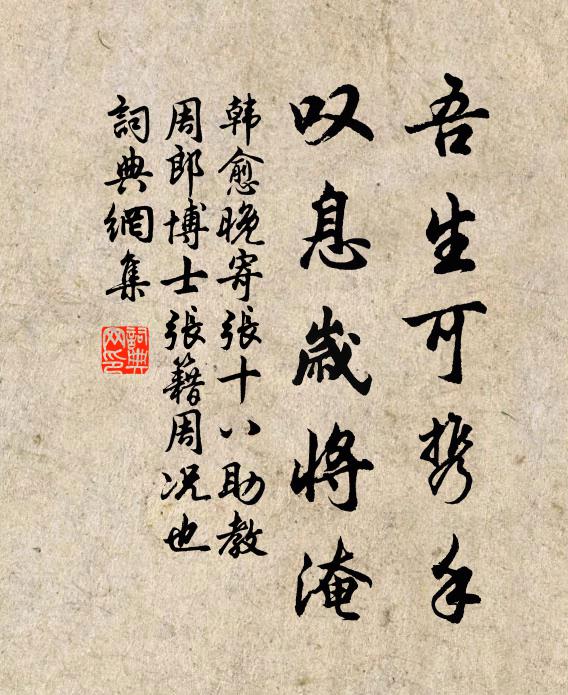 吾生可携手
叹息歲將淹
韩愈晚寄張十八助教
周郎博士張籍周况也
詞典網集
詞典
网印